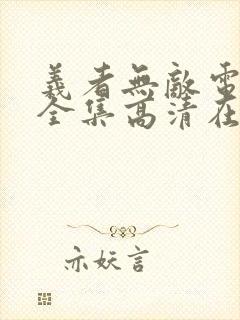 義者無敵電
全集高清在
亦妖言